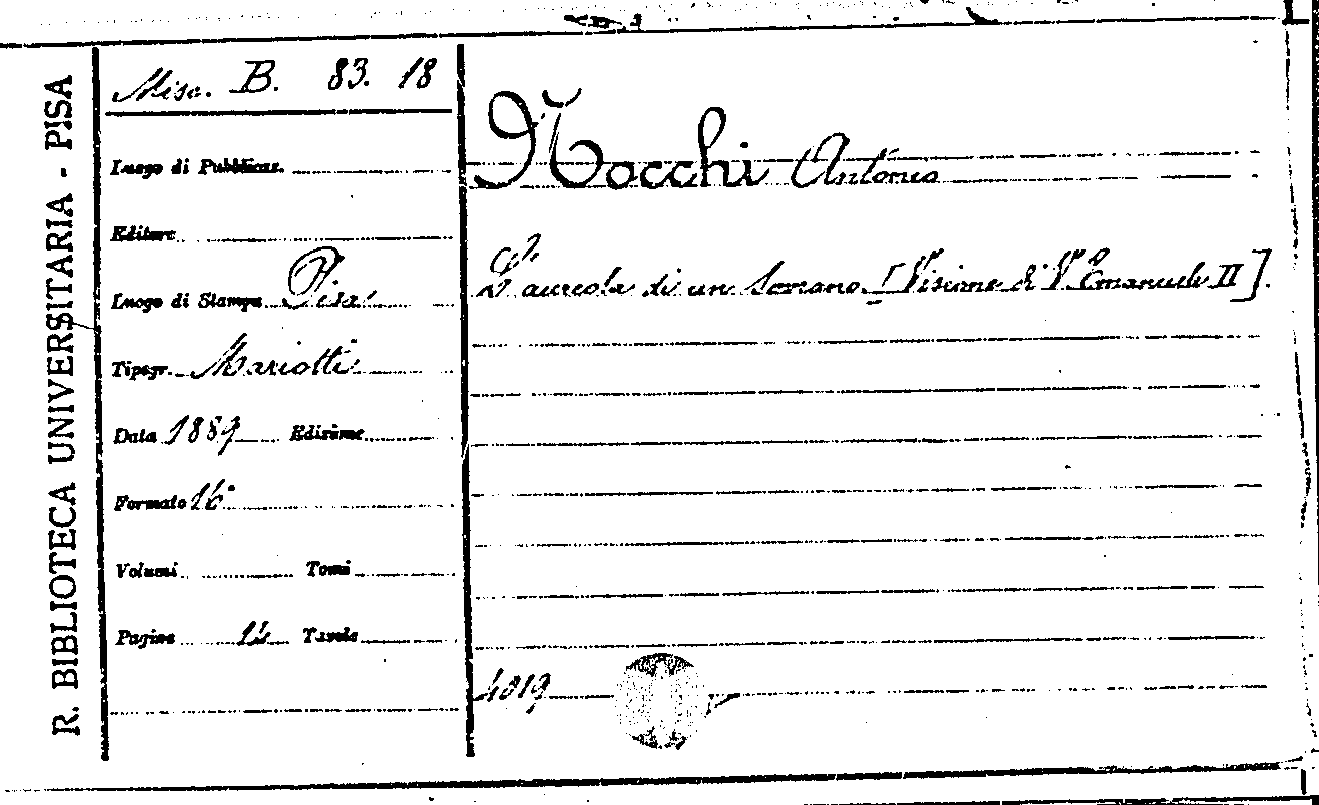 R. BIBLIOTECA UNIVERSITARIA - PISA
Misc. B. 83. 18
Luogo di Pubblicaz.
Editore
Luogo di Stampa Pisa
Tipogr. Mariotti
Data 1889 Edizione
Formato 16°
Volumi Tomi
Pagine Tavole
Nocchi Antonio
L'aureola di un Sovrano. [Visione di V. Emanuele II].
4019